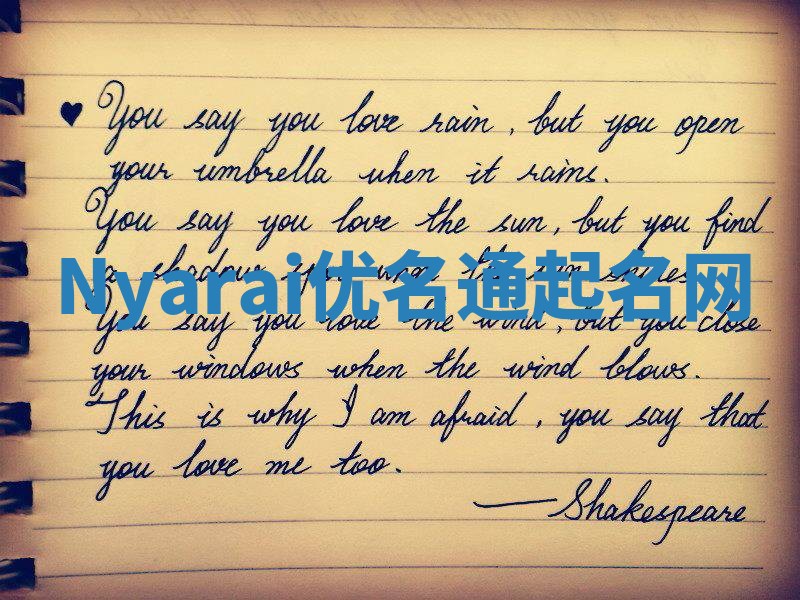 ♥ You say you love rain, but you open
your umbrella when it rains.
You say you love the sun, but you find
a shadow spot when the sun shines.
Nyarai优名通起名网
You say you love the wind, but you close
your windows when the wind blows.
This is why I am afraid, you say that
you love me too.
—Shakespeare